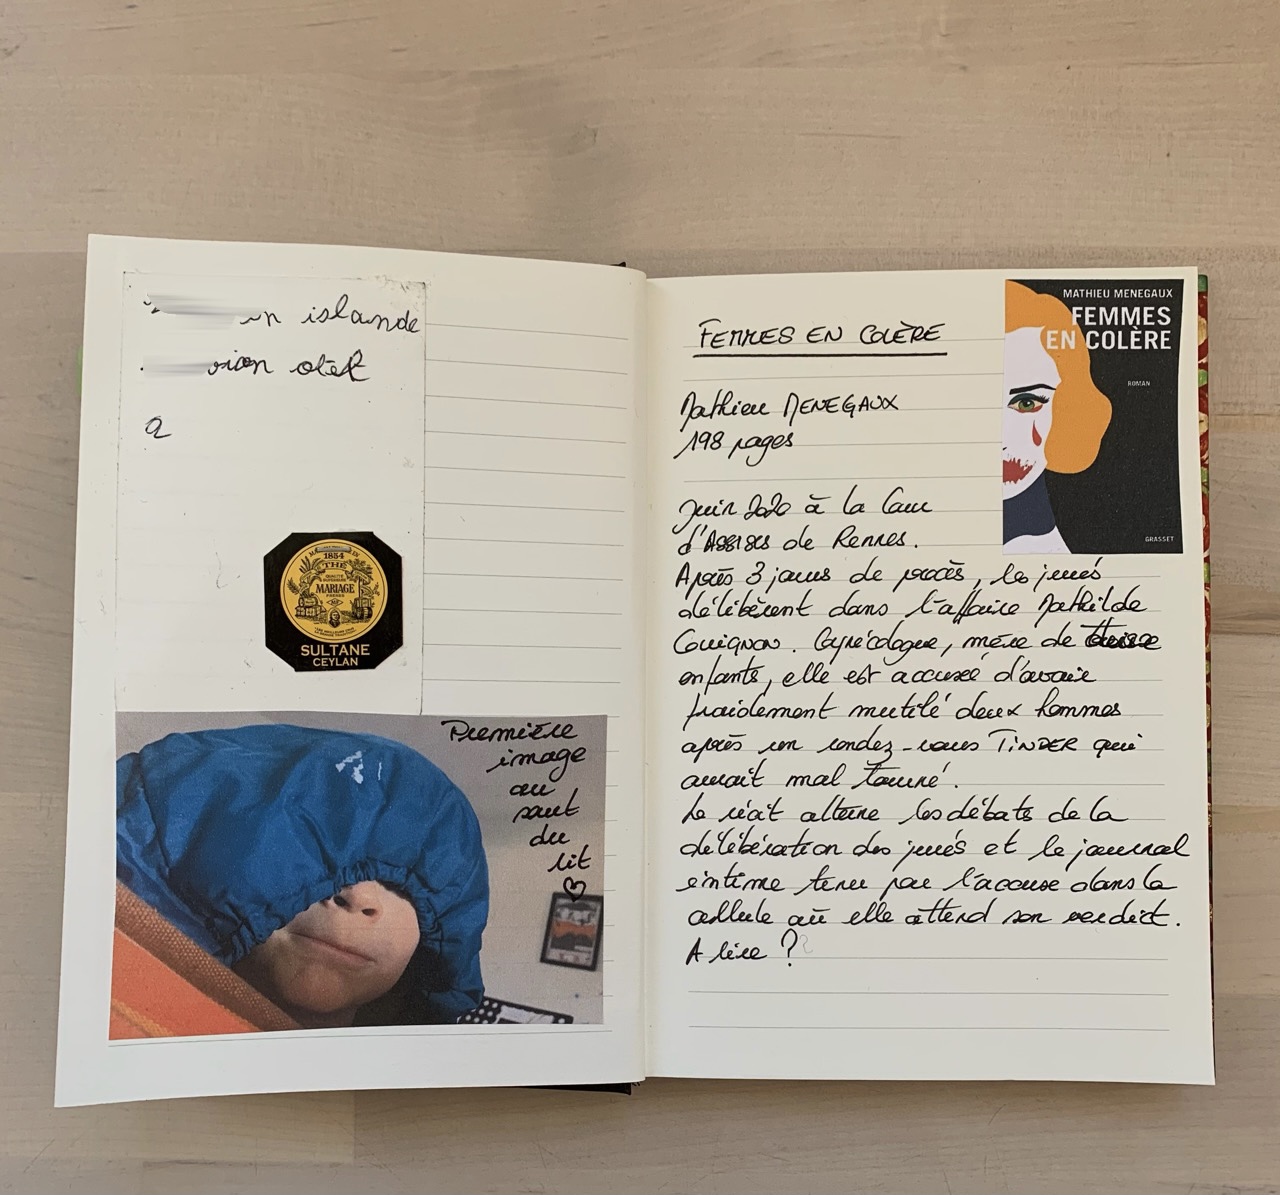 en islande
a
1854
THÉ
MARIAGE
FRÈRES
SULTANE
CEYLAN
Première
image
au
saut
du
lit
FEMMES EN COLÈRE
Mathieu MENEGAUX
198 pages
Juin 2020 à la Cour
d'Assises de Rennes.
Après 3 jours de procès, les jurés
délibèrent dans l'affaire Mathilde
Collignon. Gynécologue, mère de
enfants, elle est accusée d'avoir
froidement mutilé deux hommes
après un rendez-vous TINDER qui
aurait mal tourné.
Le récit alterne les débats de la
délibération des jurés et le journal
intime tenu par l'accusé dans la
cellule où elle attend son verdict.
A lire ?
MATHIEU MENEGAUX
FEMMES
EN COLÈRE
ROMAN
GRASSET